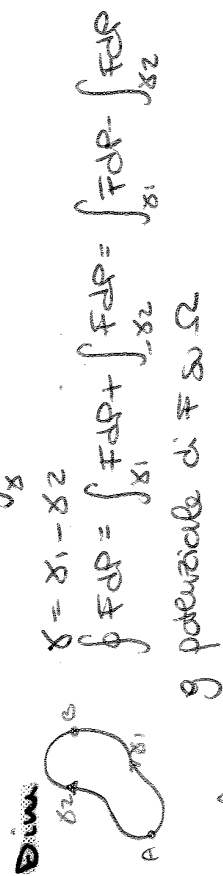 Dim
γ2
B
γ1
A
γ
γ = γ1 - γ2
∮ F dP = ∫γ1 F dP + ∫-γ2 F dP = ∫γ1 F dP - ∫γ2 F dP
g potenziale di F su Ω